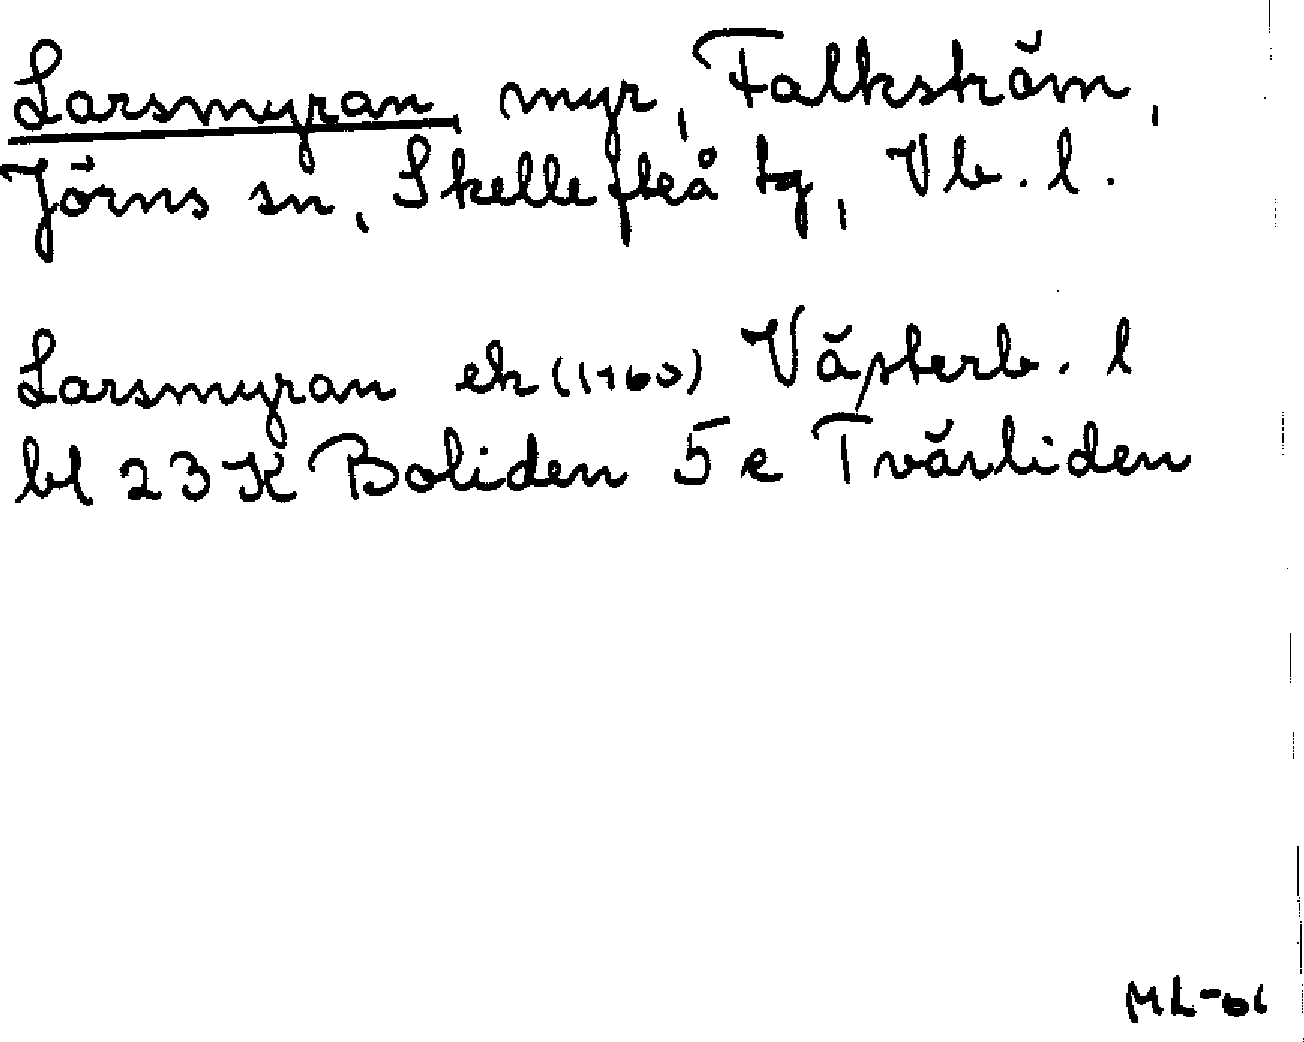 Larsmyran myr, Falkström,
Jörns sn, Skellefteå tg, Vb. l.
Larsmyran ek (1960) Västerb. l
bl 23K Boliden 5e Tvärliden
ML-61